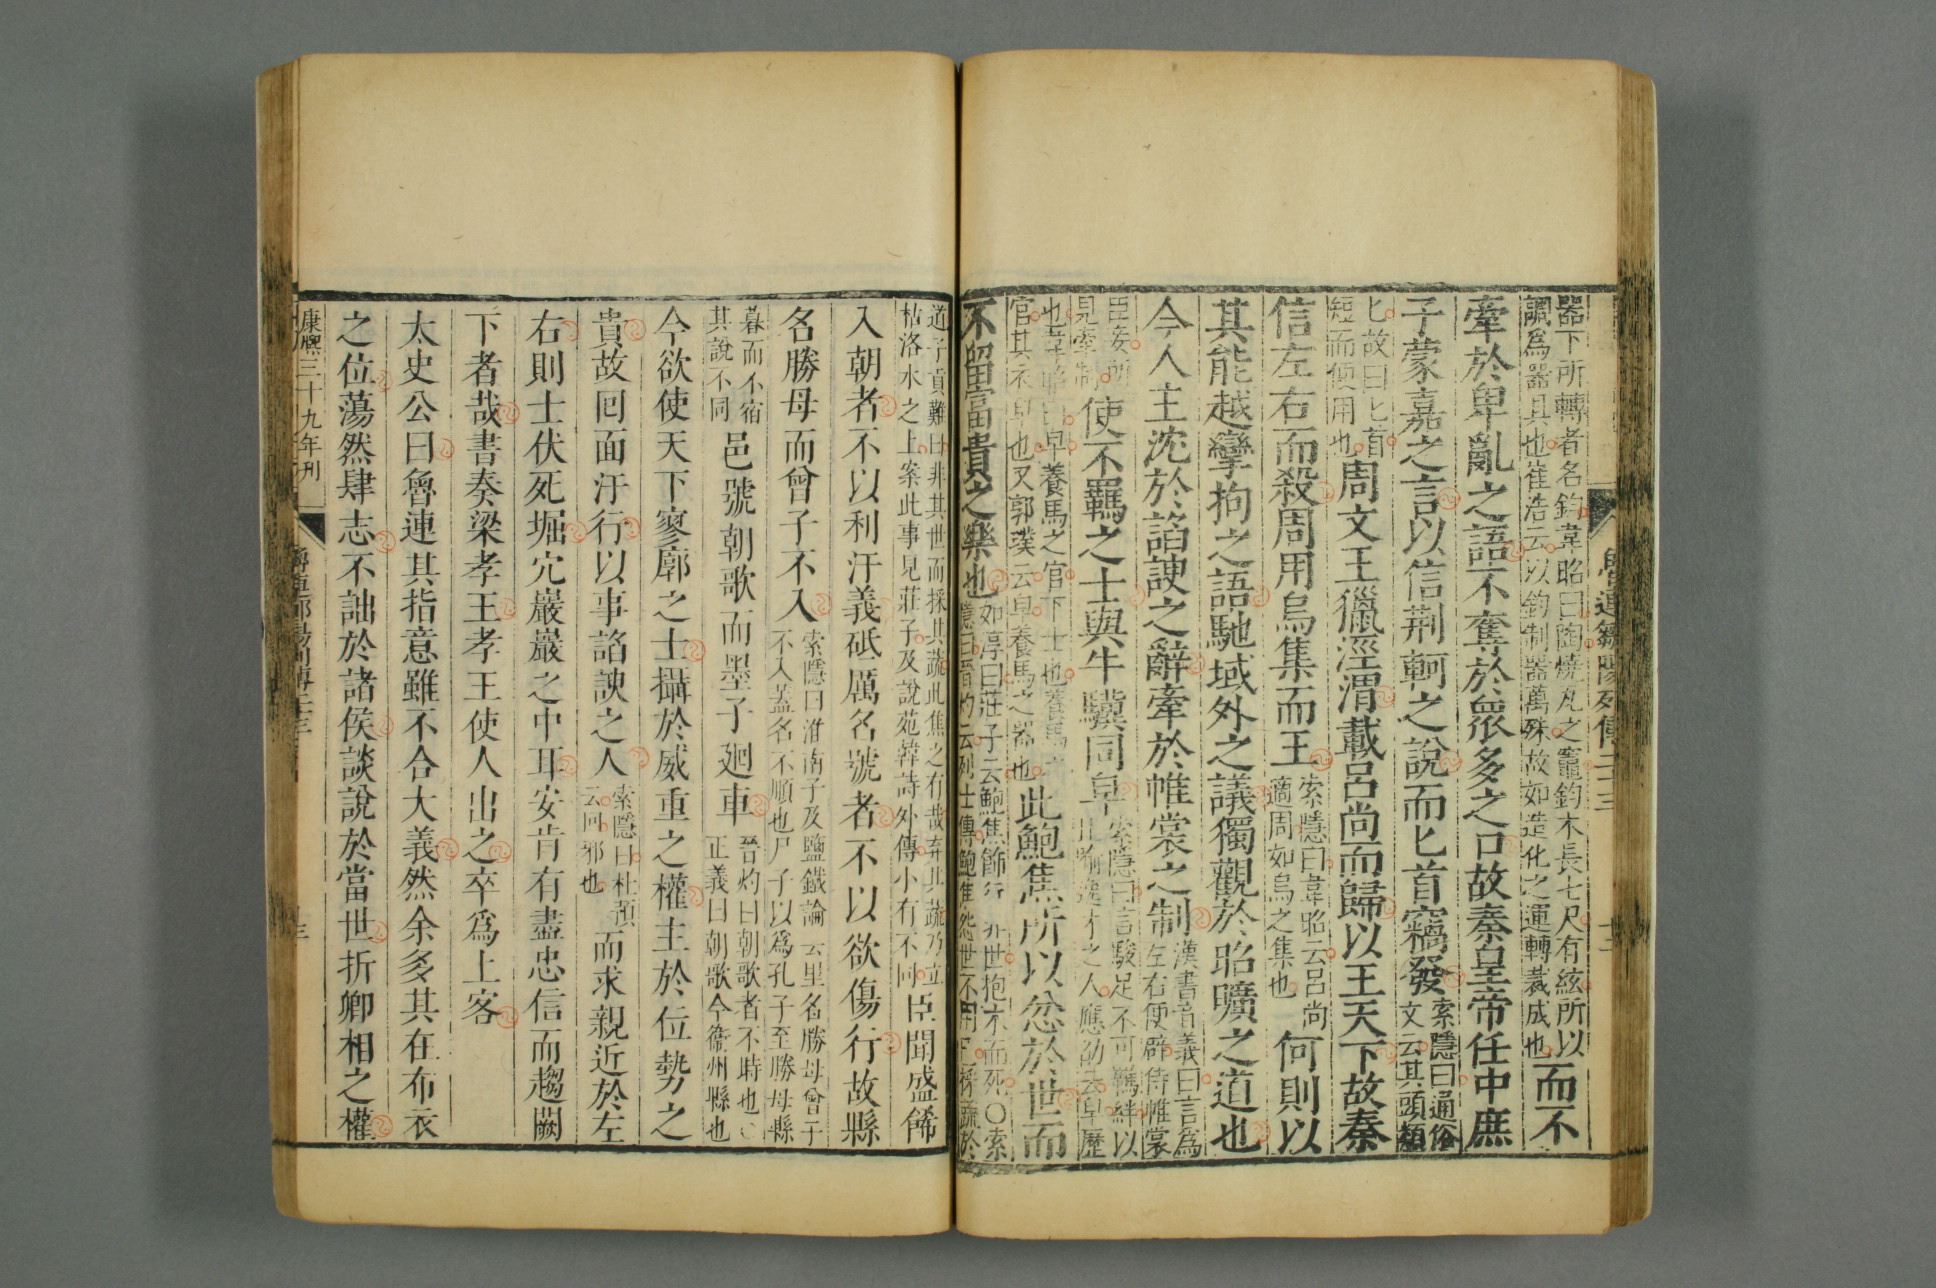 魯連鄒陽列傳二十三
十二
器下所轉者名鈞韋昭曰陶燒瓦之竈鈞木長七尺有絃所以
調為器具也崔浩云以鈞制器萬殊故如造化之運轉裁成也而不
牽於卑亂之語不奪於衆多之口故秦皇帝任中庶
子蒙嘉之言以信荆軻之說而匕首竊發索隱曰通俗
文云其頭類
匕故曰匕首
短而便用也周文王獵涇渭載呂尚而歸以王天下故秦
信左右而殺周用烏集而王索隱曰韋昭云呂尚
適周如烏之集也何則以
其能越攣拘之語馳域外之議獨觀於昭曠之道也
今人主沈於諂諛之辭牽於帷裳之制漢書音義曰言為
左右便辟侍帷裳
臣妾所
見牽制使不羈之士與牛驥同皁索隱曰言駿足不可羈絆以
比喻逸才之人應劭云皁歷
也韋昭曰皁養馬之官下士也養馬之
官其衣皁也又郭璞云皁養馬之器也此鮑焦所以忿於世而
不留富貴之樂也如淳曰莊子云鮑焦飾行非世抱木而死○索
隱曰晉灼云列士傳鮑焦怨世不用已採蔬於
道子貢難曰非其世而採其蔬此焦之有哉弃其蔬乃立
枯洛水之上案此事見莊子及說苑韓詩外傳小有不同臣聞盛飾
入朝者不以利汙義砥厲名號者不以欲傷行故縣
名勝母而曾子不入索隱曰淮南子及鹽鐵論云里名勝母曾子
不入蓋名不順也尸子以為孔子至勝母縣
暮而不宿
其說不同邑號朝歌而墨子廻車晉灼曰朝歌者不時也○
正義曰朝歌今衞州縣也
今欲使天下寥廓之士攝於威重之權主於位勢之
貴故囘面汙行以事諂諛之人索隱曰杜預
云囘邪也而求親近於左
右則士伏死堀穴巖巖之中耳安肯有盡忠信而趨闕
下者哉書奏梁孝王孝王使人出之卒爲上客
太史公曰魯連其指意雖不合大義然余多其在布衣
之位蕩然肆志不詘於諸侯談說於當世折卿相之權
康熙三十九年刊